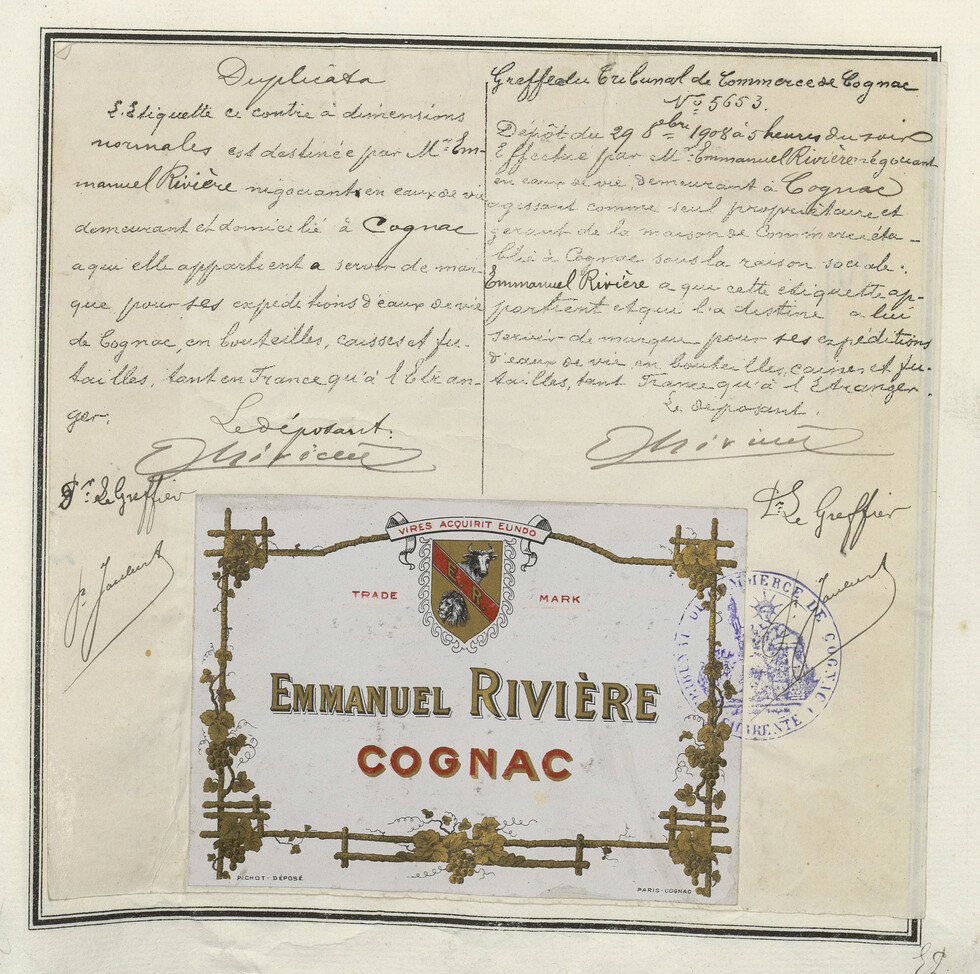 Duplicata
L'Etiquette ci contre à dimensions
normales est destinée par Mr Em-
manuel Rivière négociant en eaux de vie
demeurant et domicilié à Cognac
a qui elle appartient a servir de mar-
que pour ses expeditions d'eaux de vie
de Cognac, en bouteilles, caisses et fu-
tailles, tant en France qu'à l'Etran-
ger.
Le déposant.
ERivière
Pr Le Greffier
Greffe du Tribunal de Commerce de Cognac
No 5653.
Dépôt du 29 8bre 1908 à 5 heures du soir
Effectué par Mr Emmanuel Rivière négociant
en eaux de vie, demeurant à Cognac
agissant comme seul propriétaire et
gerant de la maison de Commerce éta-
blie à Cognac sous la raison sociale.
Emmanuel Rivière a qui cette etiquette ap-
partient et qui l'a destine a lui
servir de marque pour ses expéditions
d'eaux de vie, en bouteilles, caisses et fu-
tailles, tant France qu'à l'Etranger
Le deposant.
ERivière
Pr Le Greffier
VIRES ACQUIRIT EUNDO
E. R
TRADE MARK
EMMANUEL RIVIÈRE
COGNAC
PICHOT - DÉPOSÉ
PARIS-COGNAC
TRIBUNAL DE COMMERCE DE COGNAC
CHARENTE